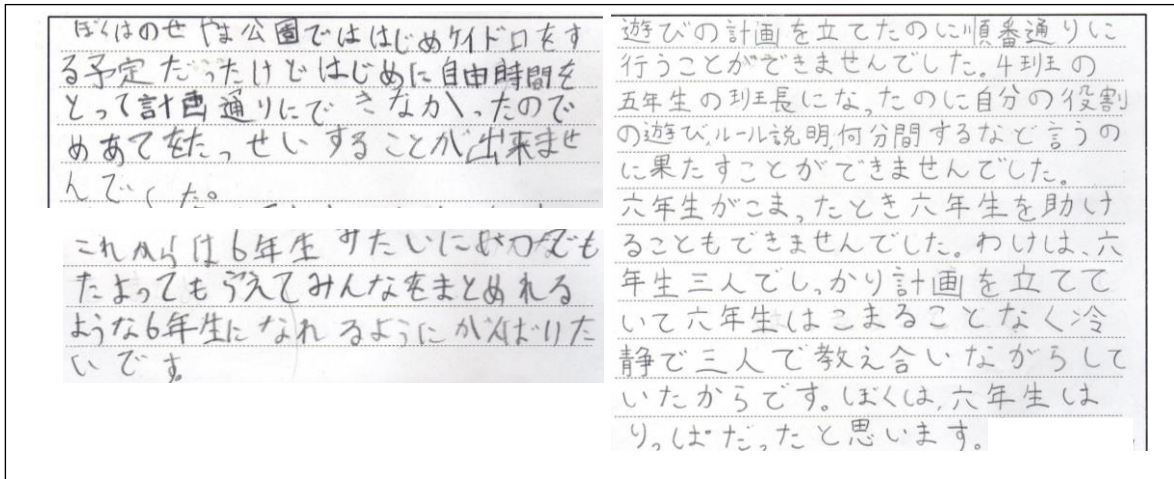 ぼくはのせやま公園でははじめケイドロをす
る予定だったけどはじめに自由時間を
とって計画通りにできなかったので
めあてをたっせいすることが出来ませ
んでした。
これからは6年生みたいにいつでも
たよってもらえてみんなをまとめれる
ような6年生になれるようにがんばりた
いです。
遊びの計画を立てたのに順番通りに
行うことができませんでした。4班の
五年生の班長になったのに自分の役割
の遊び、ルール説明、何分間するなど言うの
に果たすことができませんでした。
六年生がこまったとき六年生を助け
ることもできませんでした。わけは、六
年生三人でしっかり計画を立てて
いて六年生はこまることなく冷
静で三人で教え合いながらして
いたからです。ぼくは、六年生は
りっぱだったと思います。